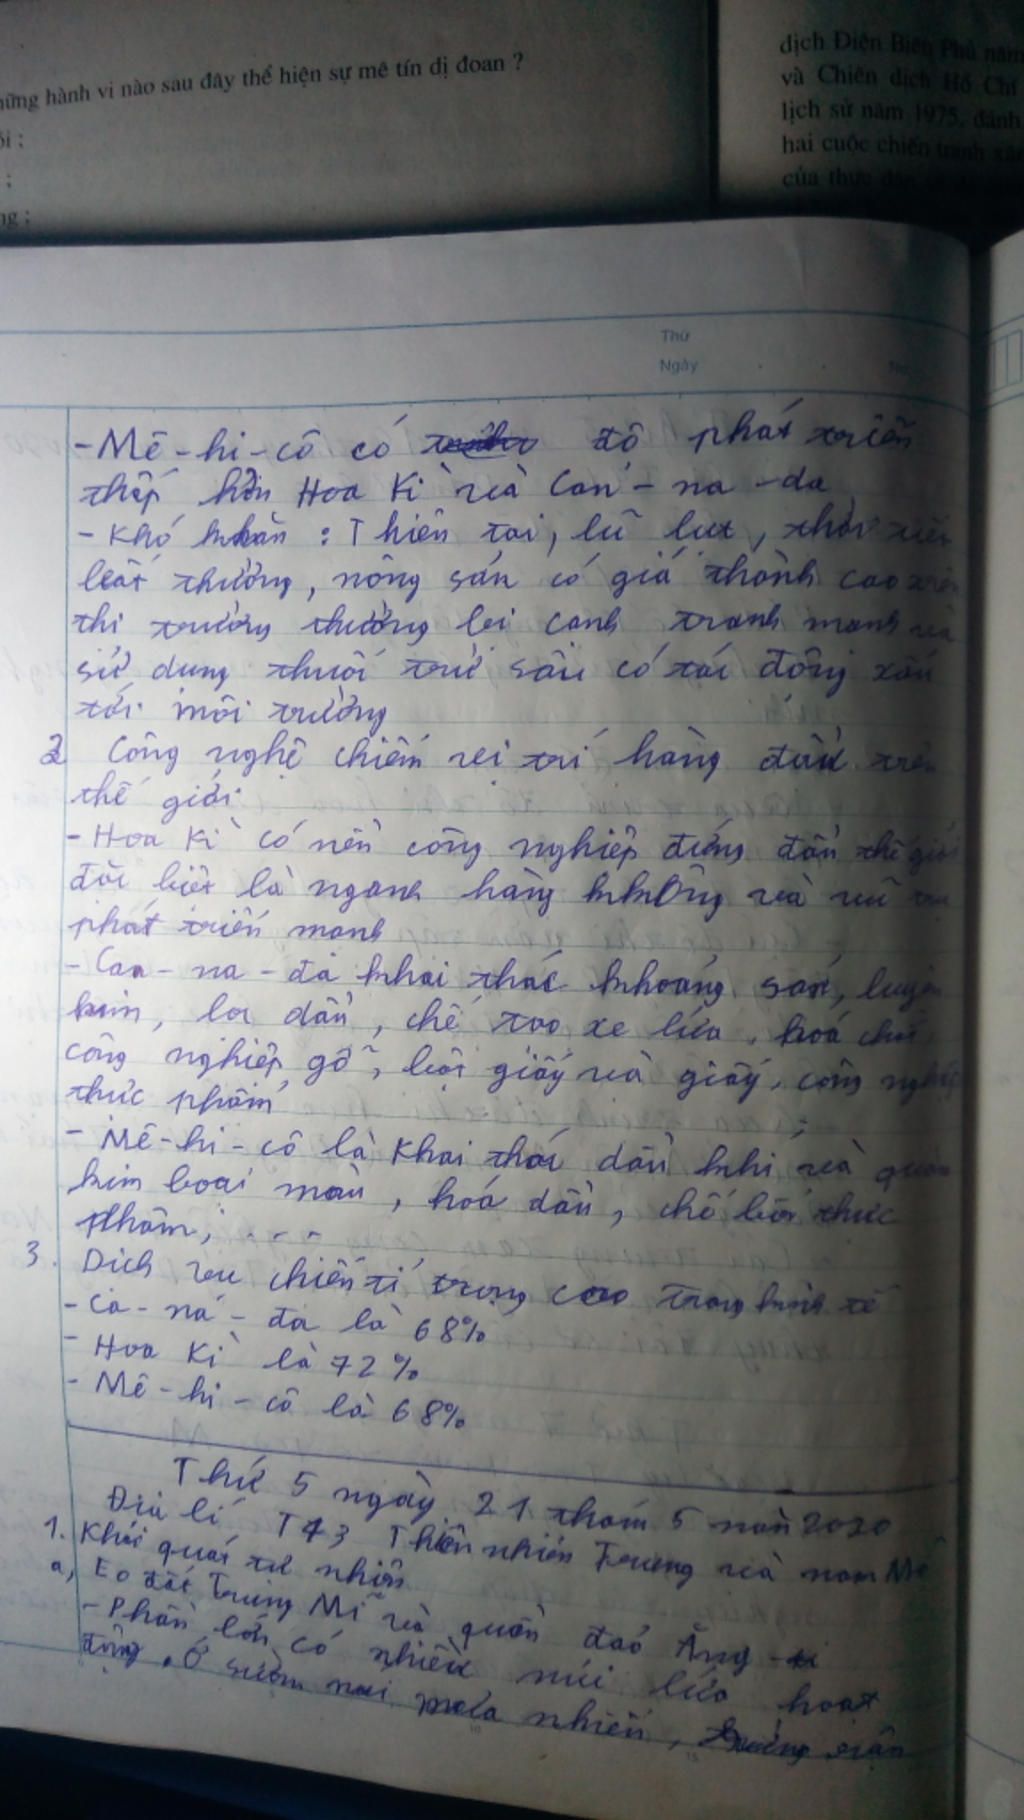 hững hành vi nào sau đây thể hiện sự mê tín dị đoan ?
ói ;
;
ng ;
dịch Điện Biên Phủ năm
và Chiến dịch Hồ Chí
lịch sử năm 1975, đánh
hai cuộc chiến tranh xâm
của thực dân
Thứ
Ngày
- Mê - hi - cô có độ phát triển
thấp hơn Hoa Kì và Can - na - da
- Khó khăn : Thiên tai, lũ lụt, thời tiết
bất thường, nông sản có giá thành cao trên
thị trường thường bị cạnh tranh mạnh và
sử dụng thuốc trừ sâu có tác động xấu
tới môi trường
2 Công nghệ chiếm vị trí hàng đầu trên
thế giới
- Hoa Kì có nền công nghiệp đứng đầu thế giới
đặc biệt là ngành hàng không và vũ trụ
phát triển mạnh
- Can - na - đa khai thác khoáng sản, luyện
kim, lọc dầu, chế tạo xe lửa, hoá chất,
công nghiệp gỗ, bột giấy và giấy, công nghiệp
thực phẩm
- Mê - hi - cô là Khai thác dầu khí và quặng
kim loại màu, hoá dầu, chế biến thực
phẩm, . . .
3. Dịch vụ chiếm tỉ trọng cao trong kinh tế
- Ca - na - đa là 68%
- Hoa Kì là 72%
- Mê - hi - cô là 68%
Thứ 5 ngày 21 tháng 5 năm 2020
Địa lí T43 Thiên nhiên Trung và nam Mĩ
1. Khái quát tự nhiên
a, Eo đất Trung Mĩ và quần đảo Ăng - ti
- Phần lớn có nhiều núi lửa hoạt
động. Ở sườn núi mưa nhiều,